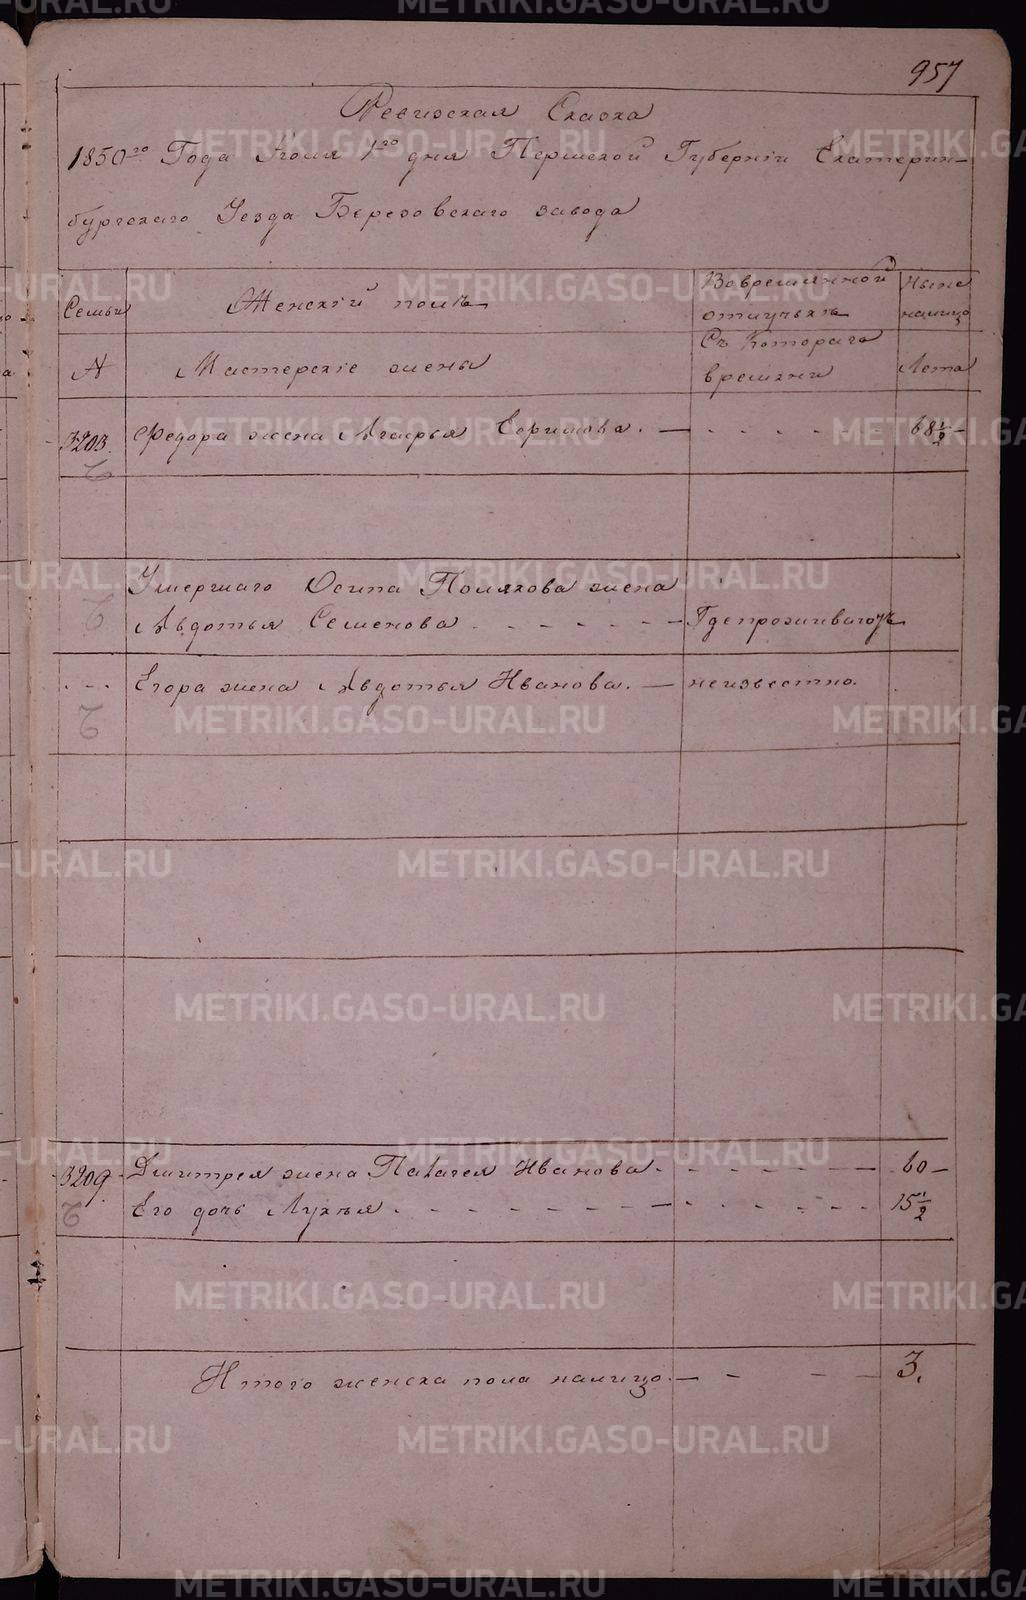 957
Ревизская Сказка
1850го Года Июля 1го дня Пермской Губерніи Екатерин-
бургскаго Уезда Березовскаго завода
Семьи
Женскій полъ
Вовремянной отлучькѣ
Ныне налицо
N
Мастерскіе жены
Съ Котораго времяни
Лета
3203. Федора жена Агафья Ефимова. — - - - - - 68 1/2 -
Умершаго Осипа Полякова жена
Авдотья Семенова - - - - - - Гдепроживаютъ
Егора жена Авдотья Иванова. — неизвестно.
3209. Дмитрея жена Палагея Иванова - - - - - - 60 -
Его дочь Лукья - - - - - - - - 15 1/2
Итого женска пола налицо. — - - - 3.
METRIKI.GASO-URAL.RU